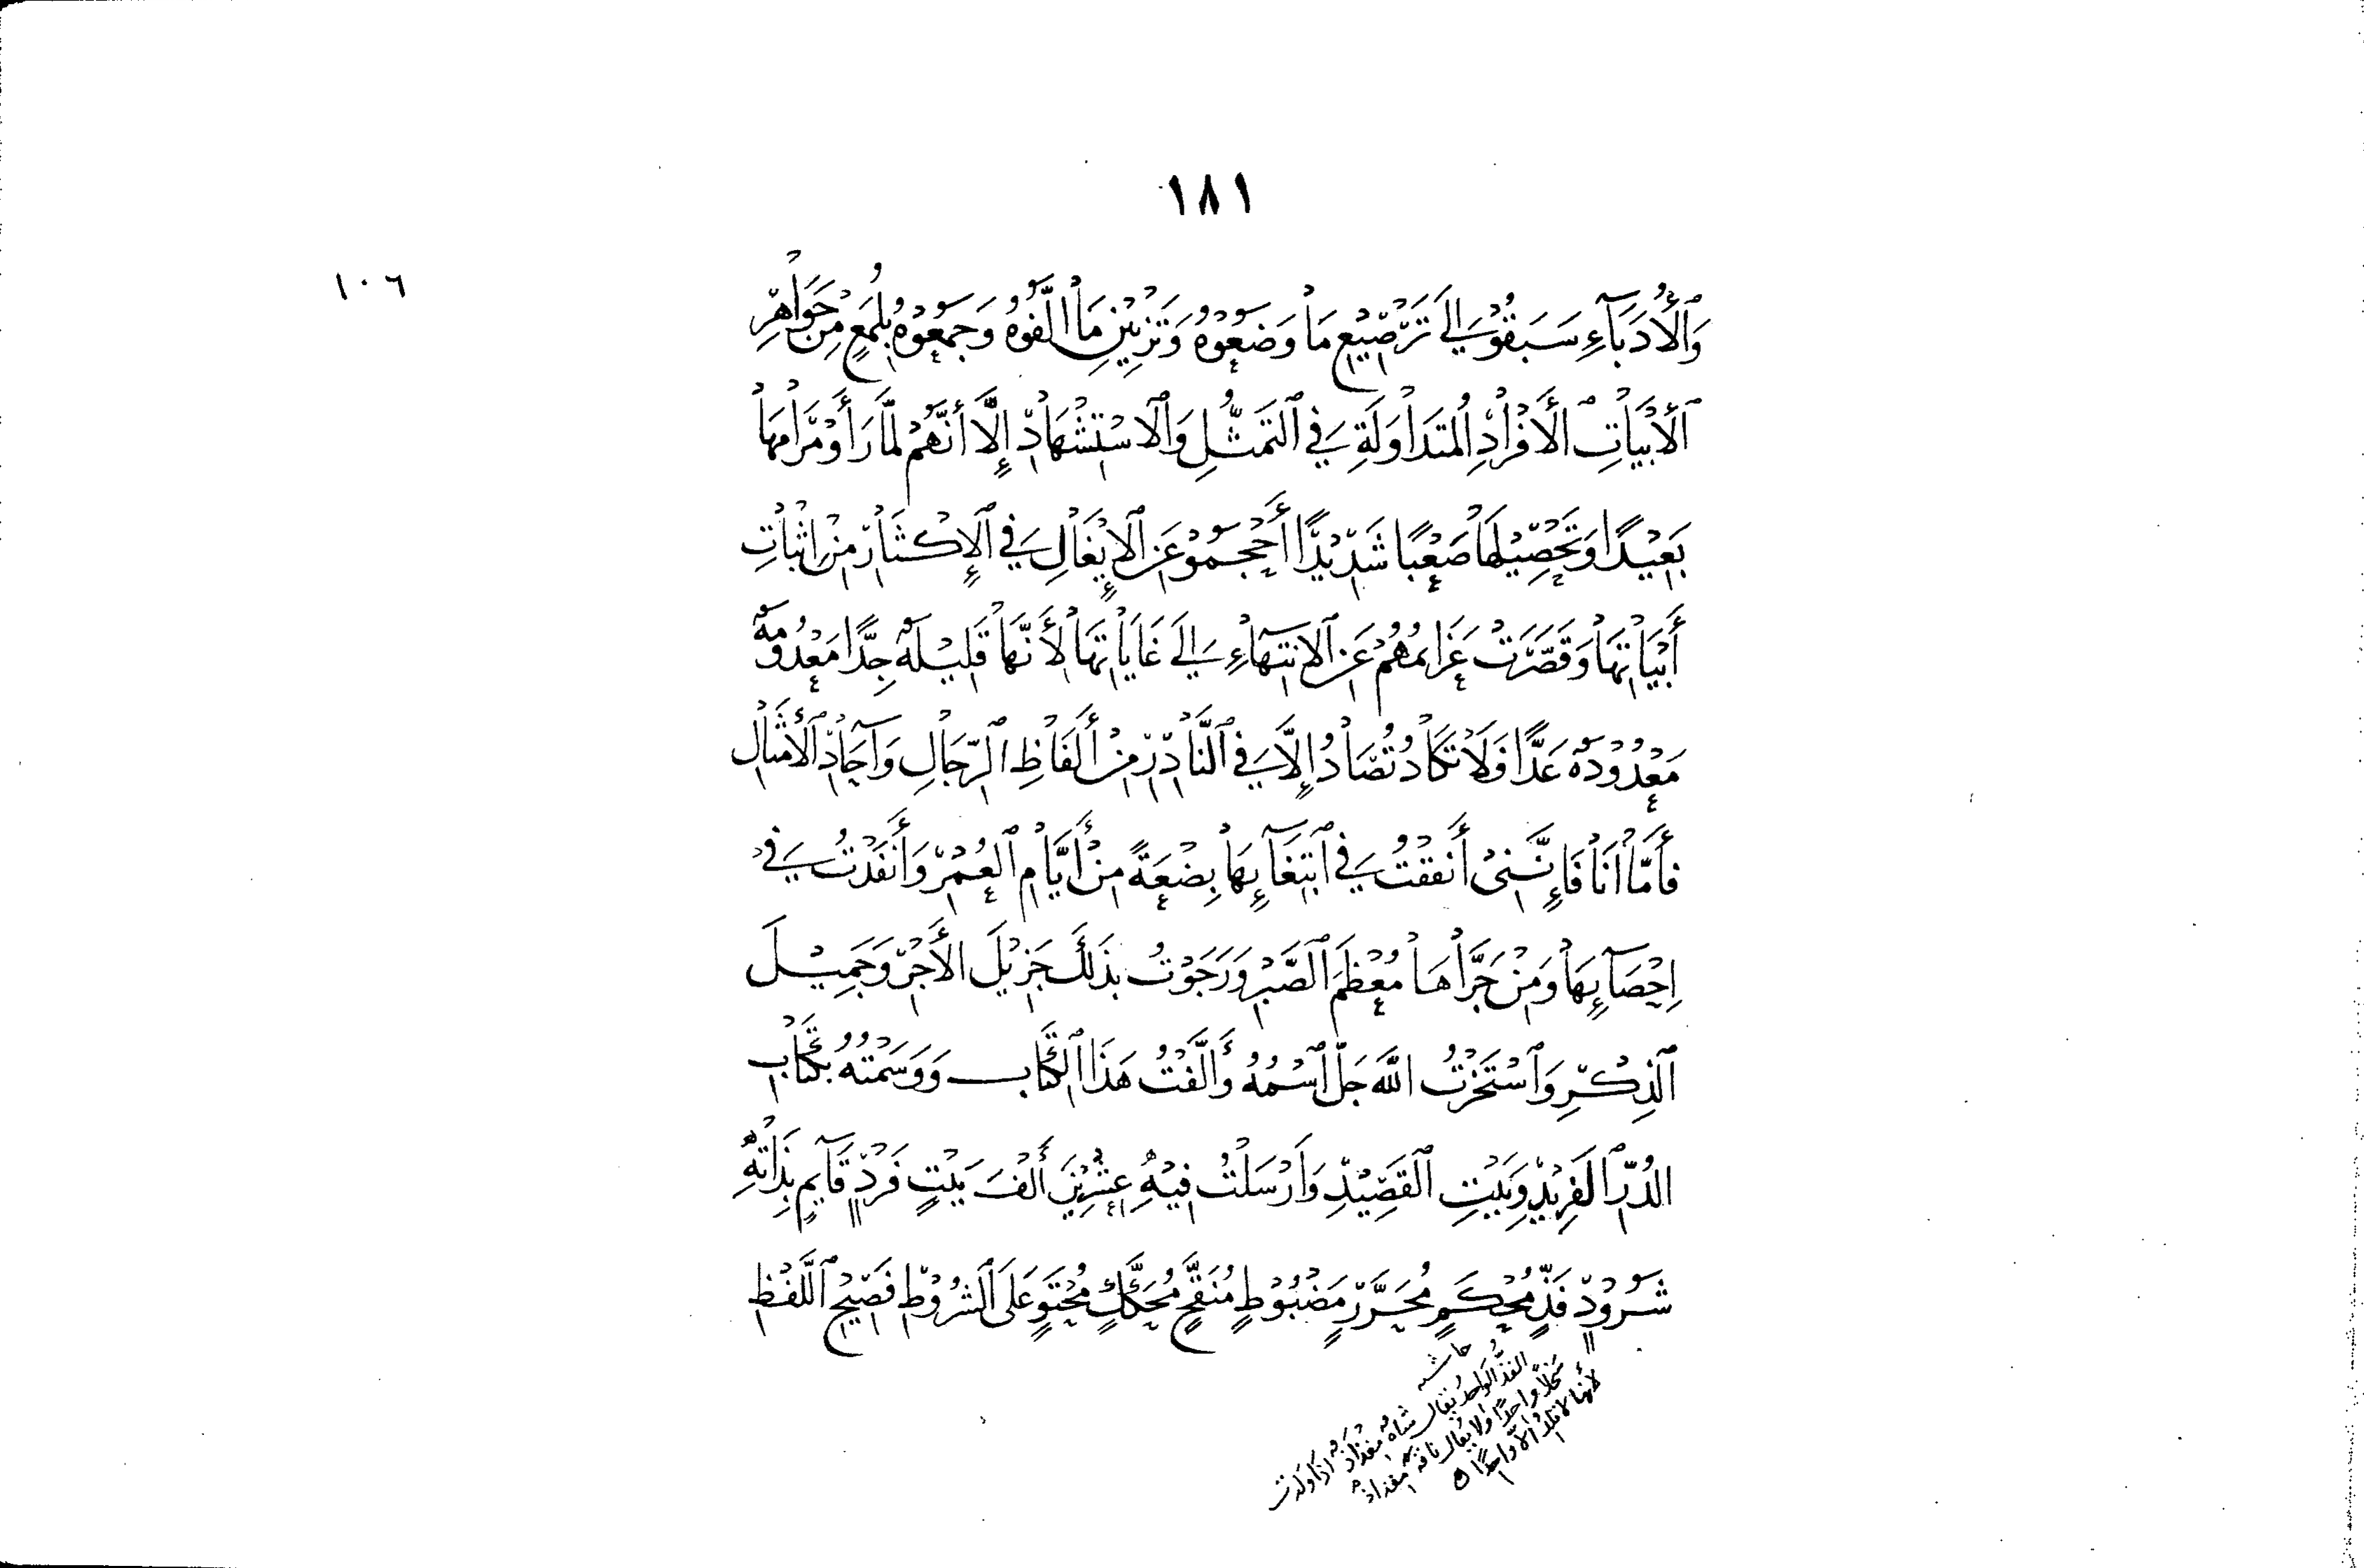 ١٨١
١٠٦
وَالْأُدَبَآءِ سَبَقُوْا إِلَى تَرْصِيْعِ مَا وَضَعُوْهُ وَتَزْيِيْنِ مَا أَلَّفُوْهُ وَجَمَعُوْهُ بِلُمَعٍ مِنْ جَوَاهِرِ
ٱلْأَبْيَاتِ ٱلْأَفْرَادِ ٱلْمُتَدَاوَلَةِ فِي ٱلتَّمَثُّلِ وَٱلِاسْتِشْهَادِ إِلَّا أَنَّهُمْ لَمَّا رَأَوْ مَرَامَهَا
بَعِيْدًا وَتَحْصِيْلَهَا صَعْبًا شَدِيْدًا أَحْجَمُوْ عَنِ ٱلْإِيْغَالِ فِي ٱلْإِكْثَارِ مِنْ إِثْبَاتِ
أَبْيَاتِهَا وَقَصَّرَتْ عَزَائِمُهُمْ عَنِ ٱلِانْتِهَآءِ إِلَى غَايَاتِهَا لِأَنَّهَا قَلِيْلَةٌ جِدًّا مَعْدُوْمَةٌ
مَعْدُوْدَةٌ عَدًّا فَلَا تَكَادُ تُصَادُ إِلَّا فِي ٱلنَّادِرِ مِنْ أَلْفَاظِ ٱلرِّجَالِ وَآحَادِ ٱلْأَمْثَالِ
فَأَمَّا أَنَا فَإِنَّنِي أَنْفَقْتُ فِي ٱبْتِغَآئِهَا بِضْعَةً مِنْ أَيَّامِ ٱلْعُمْرِ وَأَنْفَدْتُ فِي
إِحْصَآئِهَا وَمِنْ جَرَّاهَا مُعْظَمَ ٱلصَّبْرِ وَرَجَوْتُ بِذَلِكَ جَزِيْلَ ٱلْأَجْرِ وَجَمِيْلَ
ٱلذِّكْرِ وَٱسْتَخَرْتُ ٱللَّهَ جَلَّ ٱسْمُهُ وَأَلَّفْتُ هَذَا ٱلْكِتَابَ وَوَسَمْتُهُ بِكِتَابِ
الدُّرِّ ٱلْفَرِيْدِ وَبَيْتِ ٱلْقَصِيْدِ وَأَرْسَلْتُ فِيْهِ عِشْرِيْنَ أَلْفَ بَيْتٍ فَرْدٍ قَآئِمٍ بِذَاتِهِ
شَرُوْدٍ فَذٍّ مُحْكَمٍ مُحَرَّرٍ مَضْبُوْطٍ مُنَقَّحٍ مُحَكَّكٍ مُحْتَوٍ عَلَى ٱلشُّرُوْطِ فَصِيْحِ ٱللَّفْظِ
حاشية
الفذّ الواحد يقال شاةٌ مفذاذٌ إذا ولدت
سخلاً واحدًا ولا يقال ناقة مفذاذ
لأنها لا تلد إلّا واحدًا